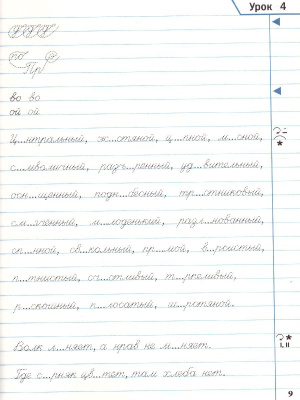 Урок 4
по
Пр
во во
ой ой
Ц...нтральный, ж...стяной, ц...пной, м...сной,
с...мволичный, разъ...ренный, уд...вительный,
осн...щенный, подн...бесный, тр...стниковый,
см...гченный, м...лоденький, разл...нованный,
сп...нной, св...кольный, пр...мой, в...рсистый,
п...тнистый, сч...стливый, т...рпеливый,
р...скошный, п...лосатый, ш...рстяной.
Волк л...няет, а нрав не м...няет.
Где с...рняк цв...тет, там хлеба нет.
I, II
9